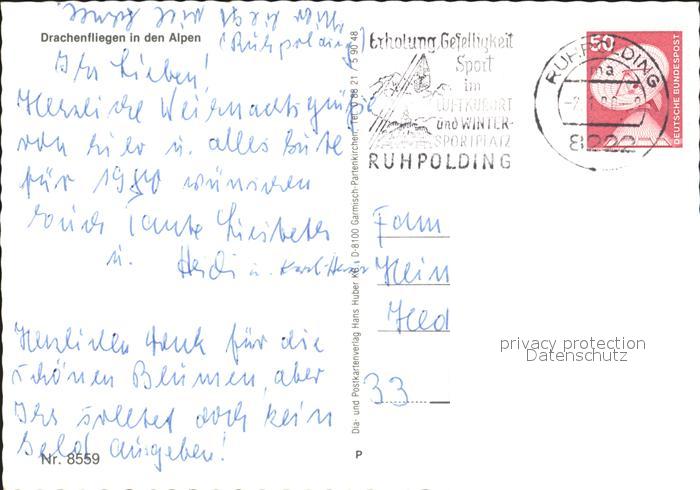 Drachenfliegen in den Alpen
(Ruhpolding)
Ihr Lieben!
Herzliche Weihnachtsgrüße
von hier u. alles Gute
für 1980 wünschen
Euch Tante
u. Heidi u. Karl-Heinz
Herzlichen Dank für die
schönen Blumen, aber
Ihr solltet doch kein
Geld ausgeben!
Nr. 8559
Dia- und Postkartenverlag Hans Huber KG, D-8100 Garmisch-Partenkirchen, Tel. 0 88 21 / 5 90 48
P
Erholung, Geselligkeit
Sport
im
LUFTKURORT
und WINTER-
SPORTPLATZ
RUHPOLDING
RUHPOLDING
8222
50
DEUTSCHE BUNDESPOST
Fam
Hein
33
privacy protection
Datenschutz